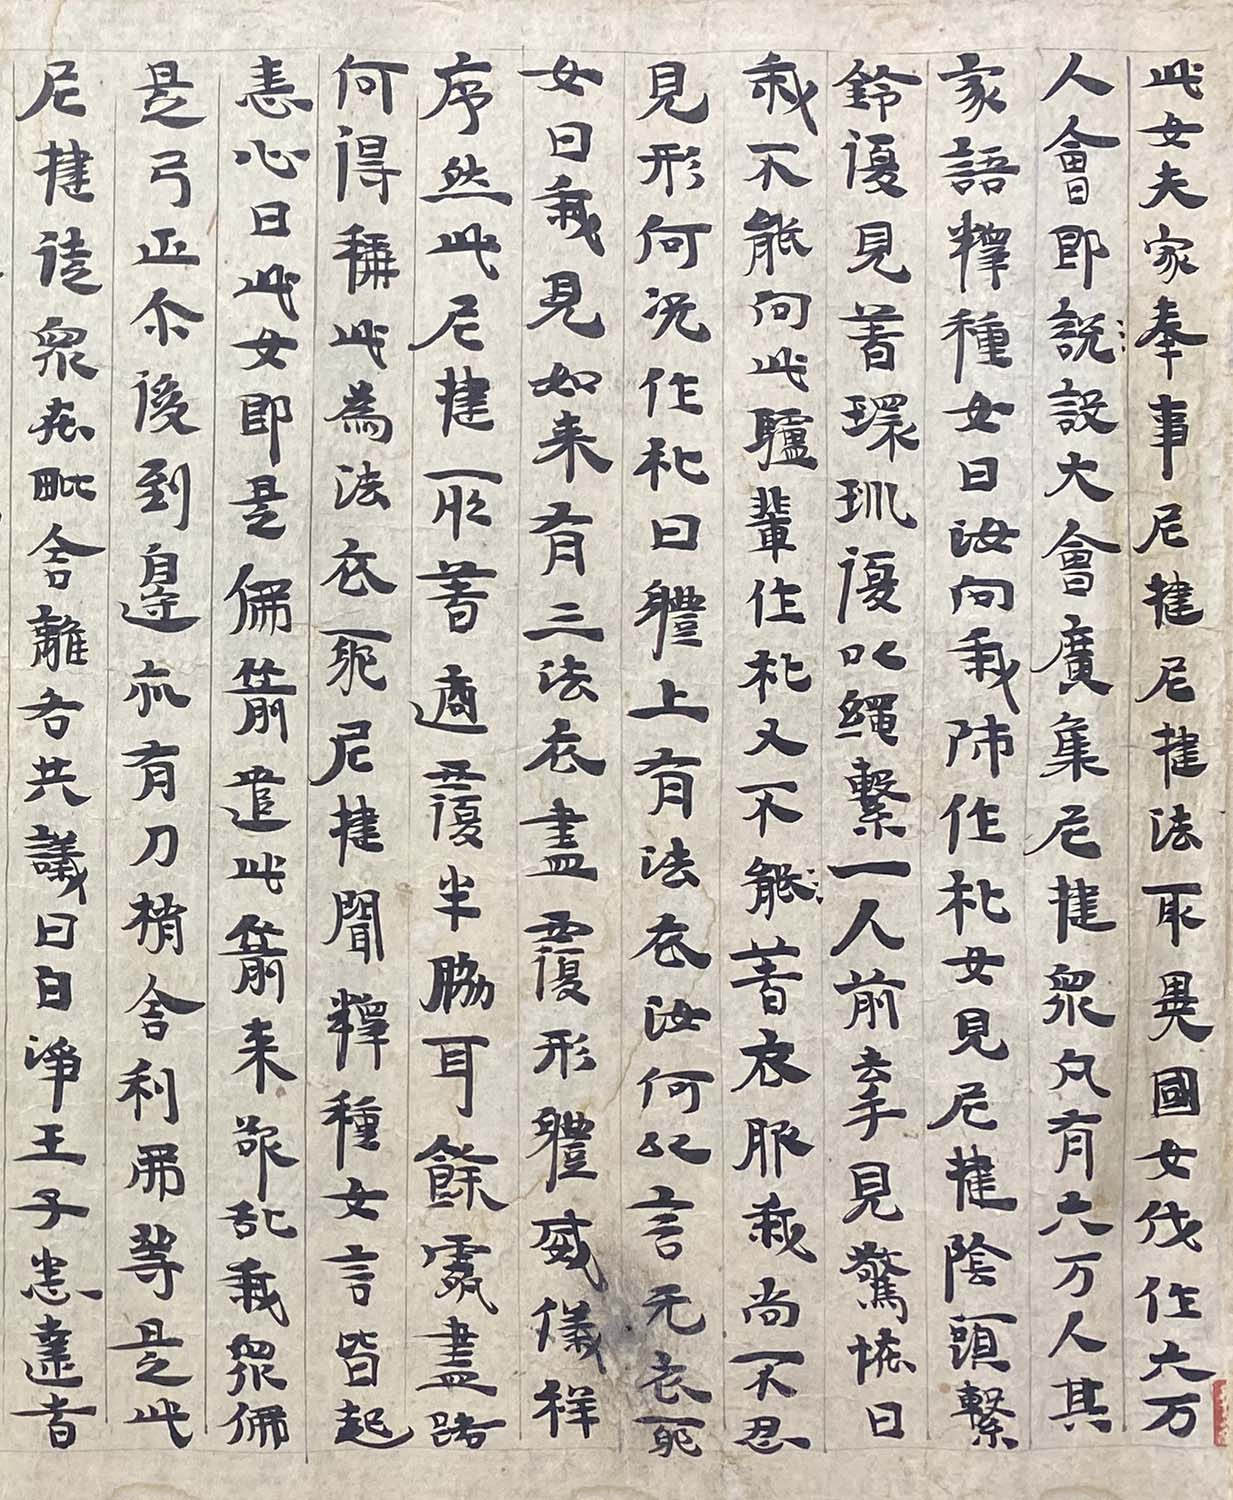 此女夫家奉事尼揵尼揵法取異國女伐作六万
人會即説設大會廣集尼揵眾凡有六万人其
家語釋種女曰汝向我師作礼女見尼揵陰頭繫
鈴復見著環玔復以繩繫一人前牽見驚恠曰
我不能向此驢輩作礼又不能著衣服我尚不忍
見形何況作礼曰軆上有法衣汝何以言无衣耶
女曰我見如来有三法衣盡覆形軆威儀祥
序然此尼揵所著適覆半脇耳餘處盡路
何得稱此為法衣耶尼揵聞釋種女言皆起
恚心曰此女即是佛箭遣此箭来欲乱我眾佛
是弓正尒後到自導亦有刀矟舍利弗等是此
尼揵徒眾在毗舍離各共議曰白淨王子悉達者